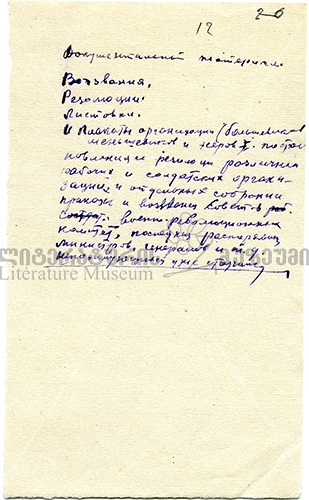 12 20
Документальный материал.
Воззвания.
Резолюции.
Листовки.
и плакаты организаций (большевиков
меньшевиков и эсеров). поста
новления и резолюции различных
рабочих и солдатских органи
заций и отдельных собраний
приказы и воззвания Совет-в раб
военно-революционных
комитет, последних распоряж
министров, генералов и
ლიტერატურის მუზეუმი
Literature Museum